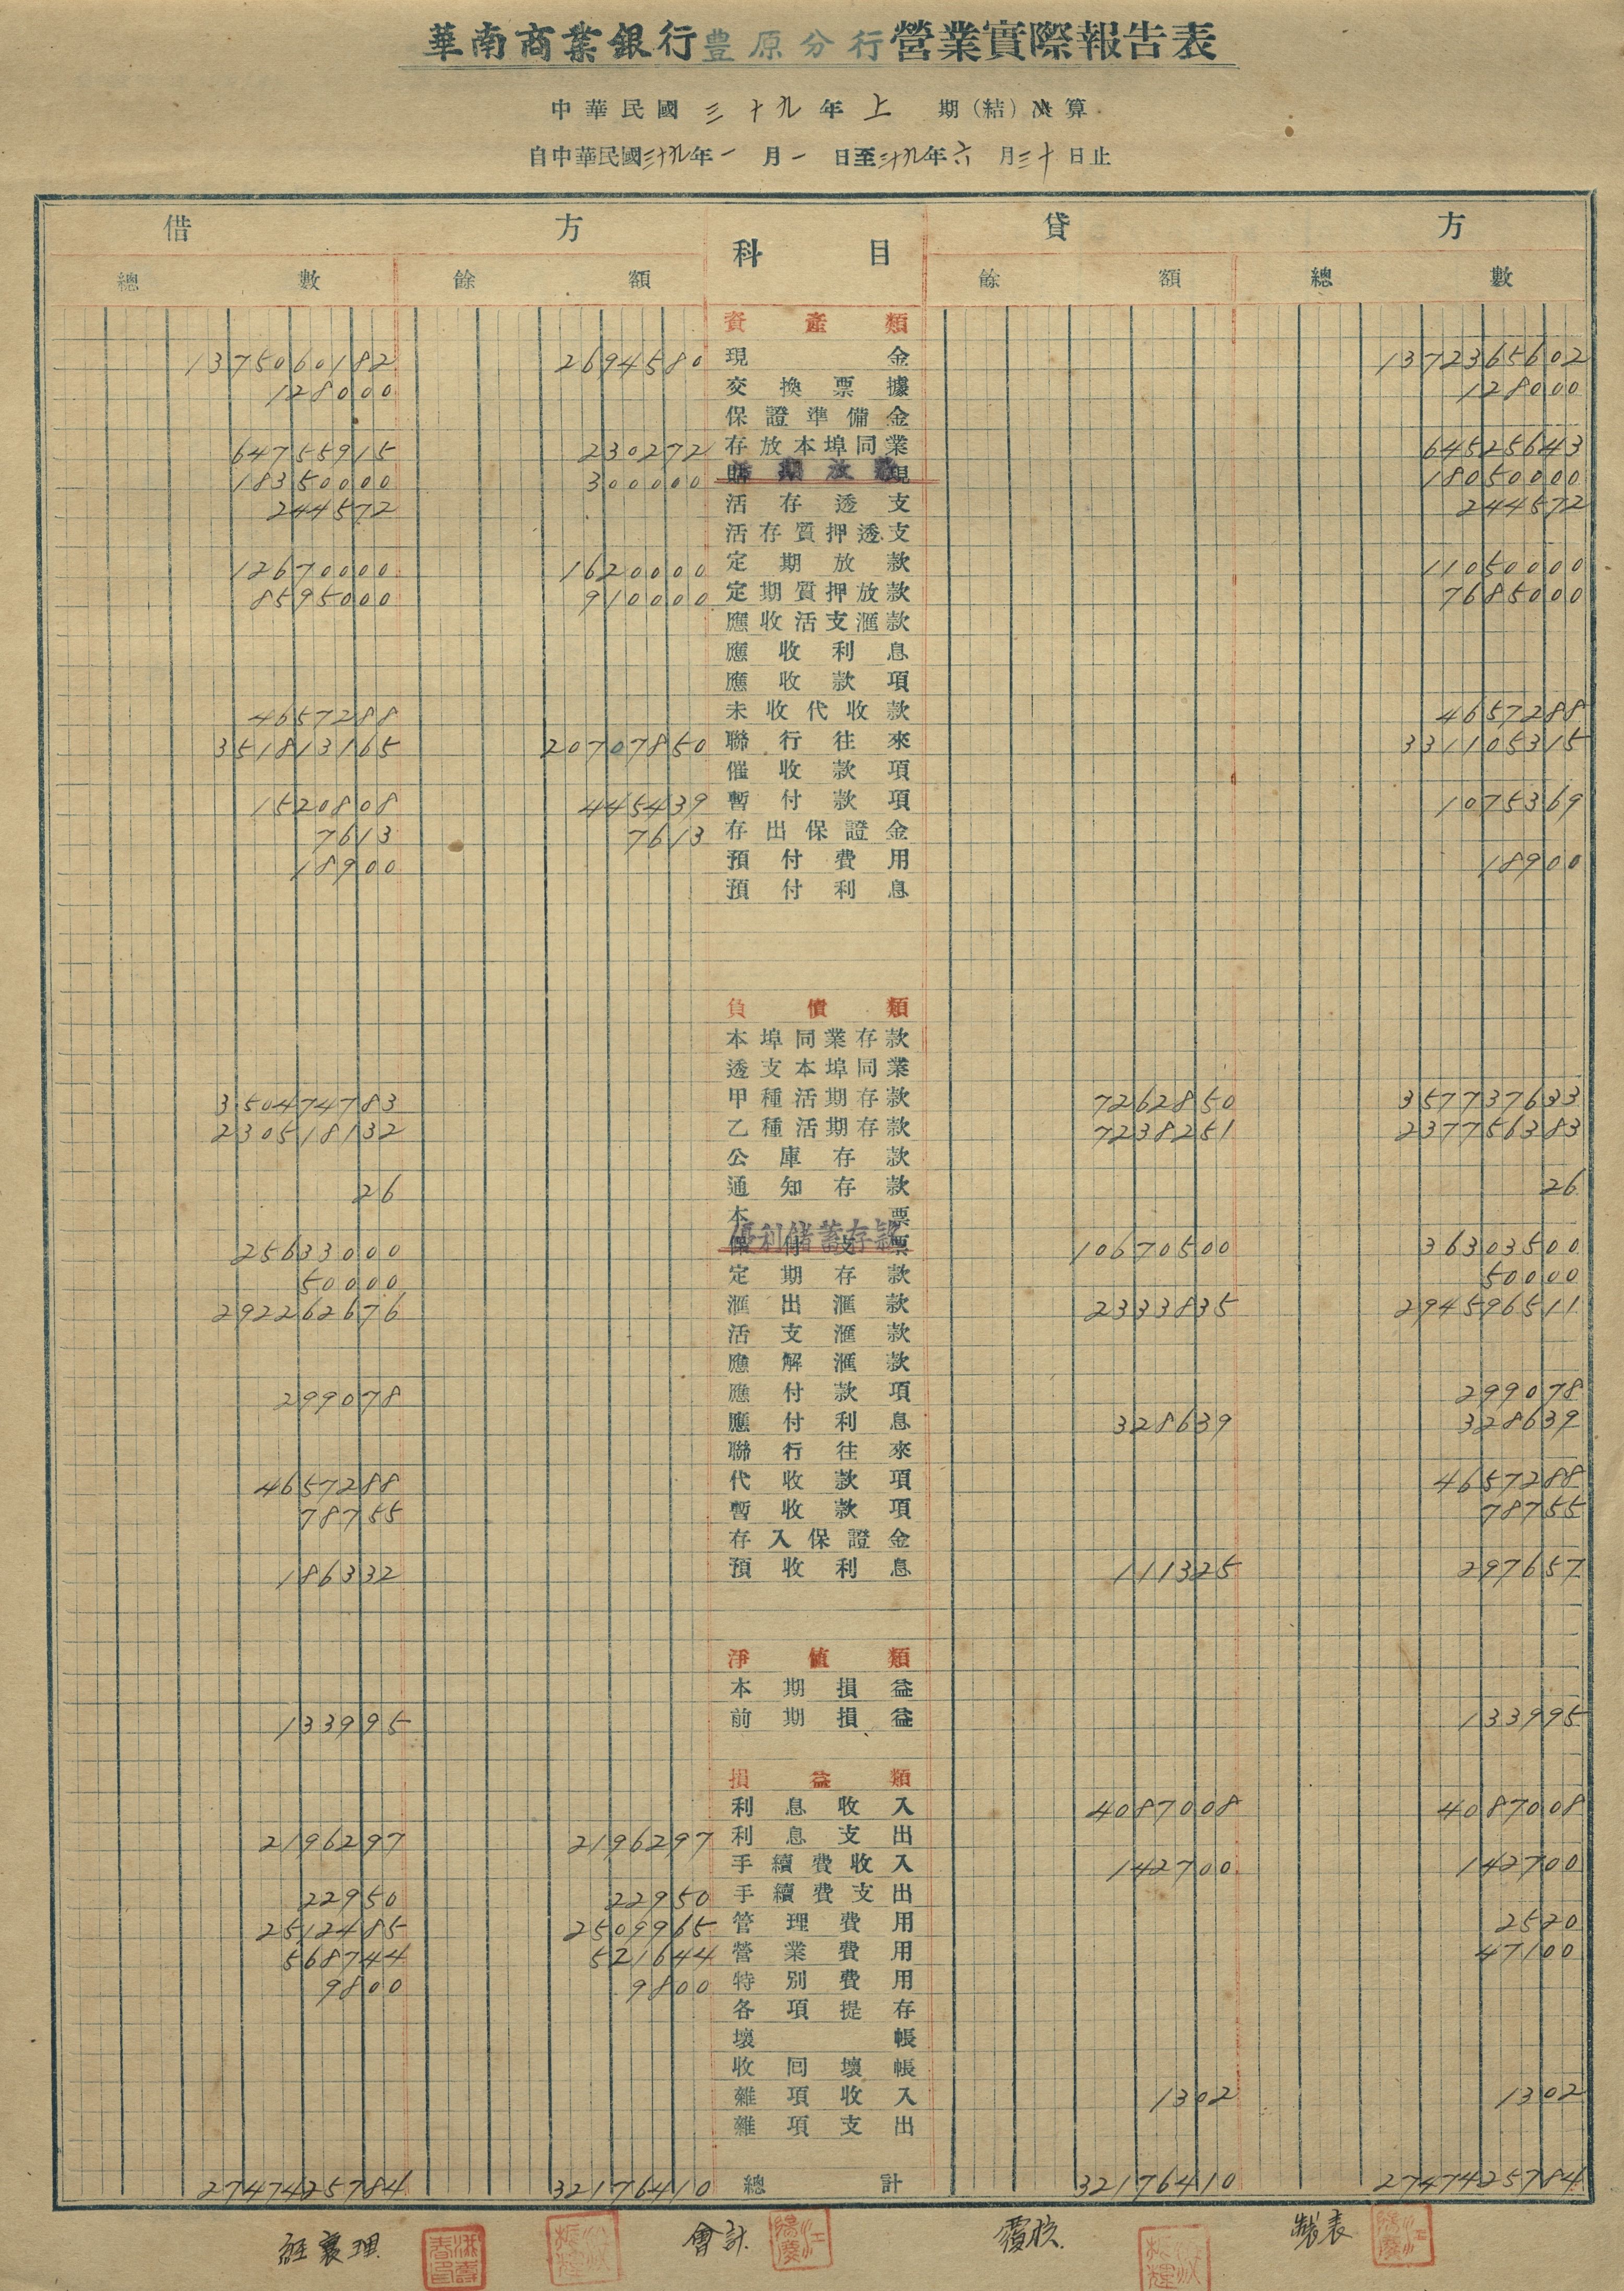 華南商業銀行豊原分行營業實際報告表
中華民國三十九年上期(結)決算
自中華民國三十九年一月一日至三十九年六月三十日止
借方 科目 貸方
總數 餘額 餘額 總數
資產類
1375060182 2694580 現金 1372365602
128000 交換票據 128000
保證準備金
64755915 230272 存放本埠同業 64525643
18350000 300000 活期放款 18050000
244572 活存透支 244572
活存質押透支
12670000 1620000 定期放款 11050000
8595000 910000 定期質押放款 7685000
應收活支滙款
應收利息
應收款項
4657288 未收代收款 4657288
351813165 20707850 聯行往來 331105315
催收款項
1520808 445439 暫付款項 1075369
7613 7613 存出保證金
18900 預付費用 18900
預付利息
負債類
本埠同業存款
透支本埠同業
350474783 甲種活期存款 7262850 357737633
230518132 乙種活期存款 7238251 237756383
公庫存款
26 通知存款 26
本票
25633000 優利儲蓄存款 10670500 36303500
50000 定期存款 50000
292262676 滙出滙款 2333835 294596511
活支滙款
應解滙款
299078 應付款項 299078
應付利息 328639 328639
聯行往來
4657288 代收款項 4657288
78755 暫收款項 78755
存入保證金
186332 預收利息 111325 297657
淨值類
本期損益
133995 前期損益 133995
損益類
利息收入 4087008 4087008
2196297 2196297 利息支出
手續費收入 142700 142700
22950 22950 手續費支出
2512485 2509965 管理費用 2520
568744 521644 營業費用 47100
9800 9800 特別費用
各項提存
壞帳
收回壞帳
雜項收入 1302 1302
雜項支出
2747425784 32176410 總計 32176410 2747425784
經襄理 會計 覆核 製表